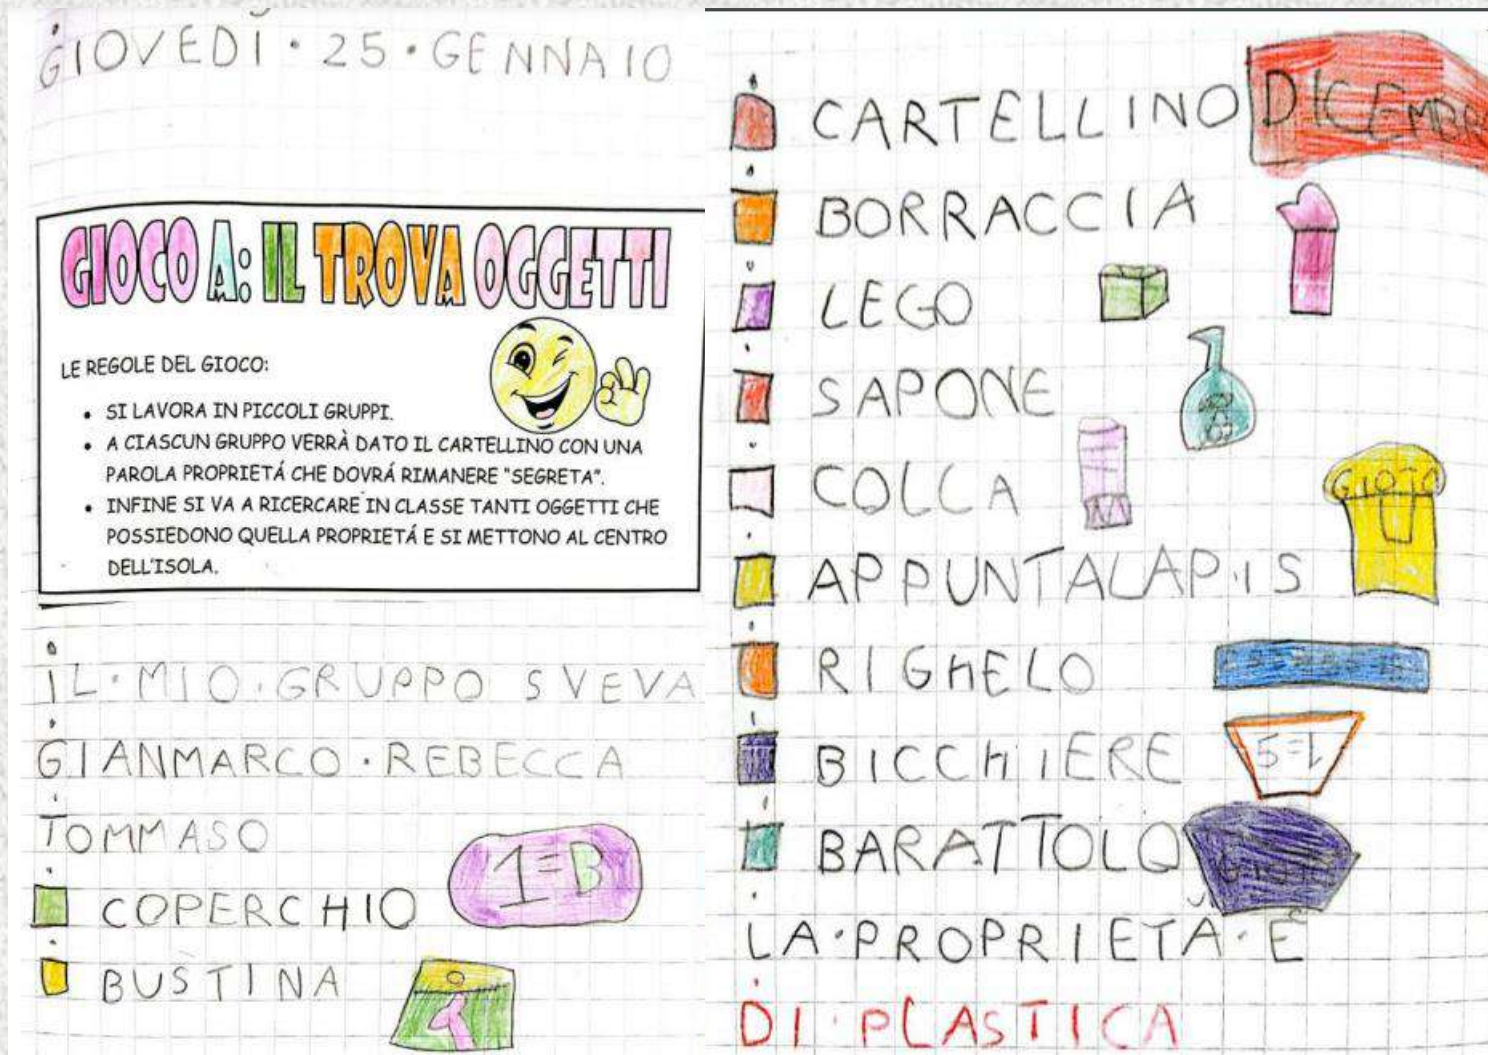 GIOVEDÌ · 25 · GENNAIO
GIOCO A: IL TROVA OGGETTI
LE REGOLE DEL GIOCO:
• SI LAVORA IN PICCOLI GRUPPI.
• A CIASCUN GRUPPO VERRÀ DATO IL CARTELLINO CON UNA
PAROLA PROPRIETÁ CHE DOVRÁ RIMANERE "SEGRETA".
• INFINE SI VA A RICERCARE IN CLASSE TANTI OGGETTI CHE
POSSIEDONO QUELLA PROPRIETÁ E SI METTONO AL CENTRO
DELL'ISOLA.
IL · MIO · GRUPPO SVEVA
GIANMARCO · REBECCA
TOMMASO
COPERCHIO 1=B
BUSTINA
CARTELLINO DICEMBRE
BORRACCIA
LEGO
SAPONE
COLLA
GIOTO
APPUNTALAPIS
RIGHELO
BICCHIERE 5=L
BARATTOLO
LA · PROPRIETÀ · È
DI · PLASTICA